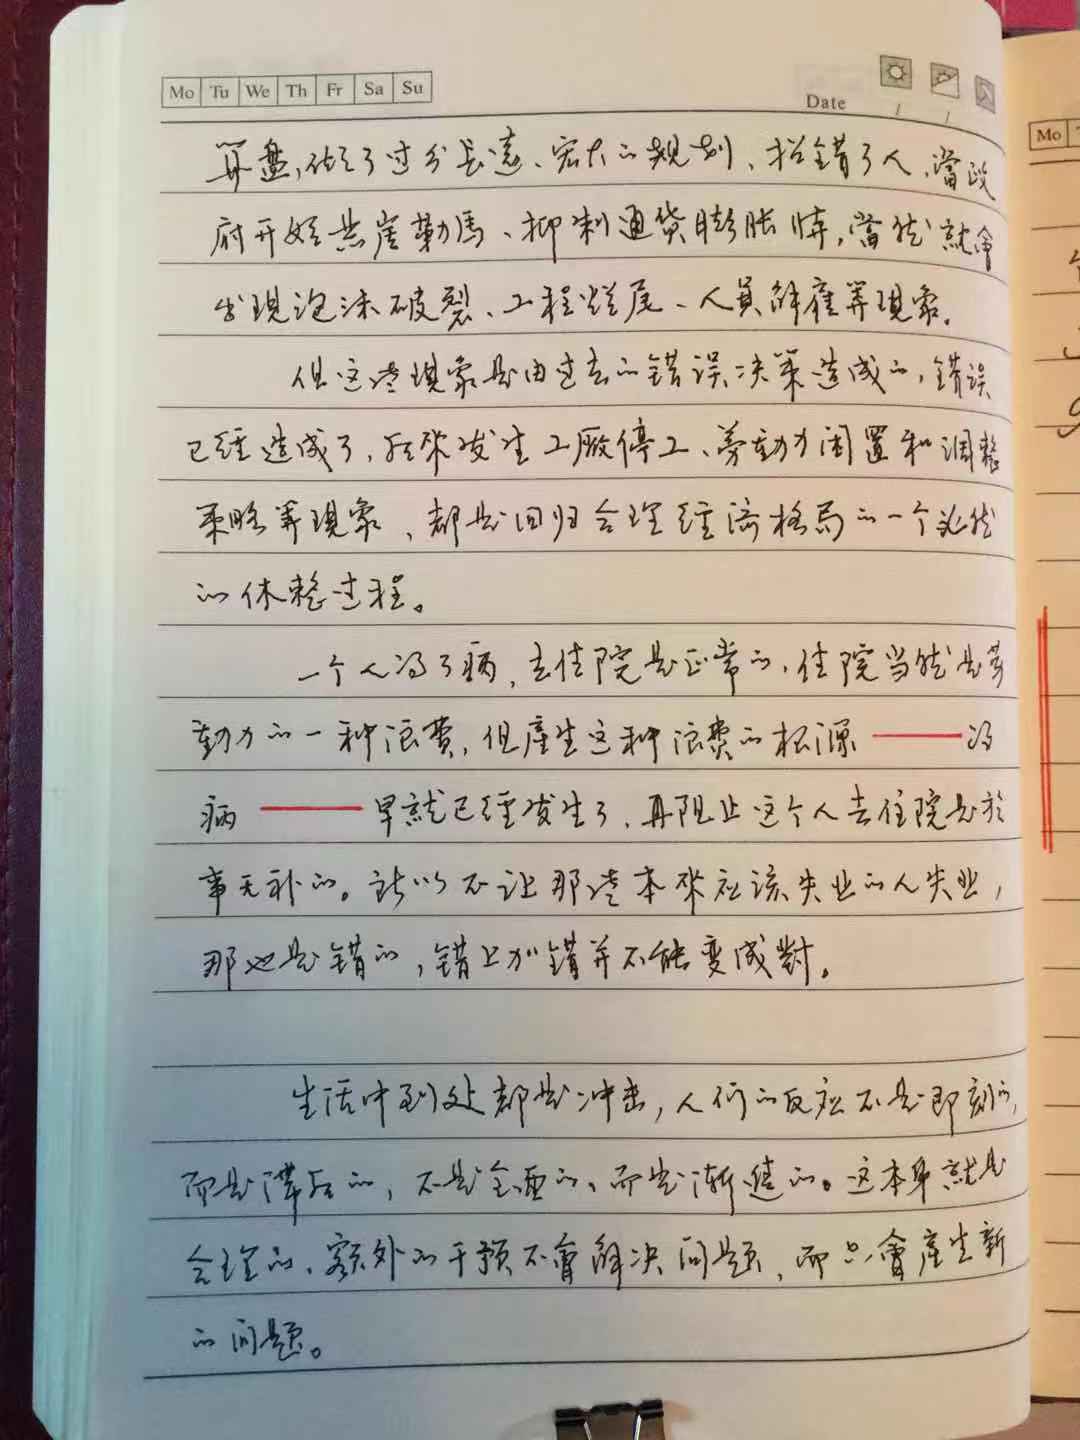 Mo Tu We Th Fr Sa Su
Date
算盘,做了过分長遠、宏大的规划、招錯了人,當政
府开始悬崖勒馬、抑制通貨膨胀時,當然就會
出現泡沫破裂、工程烂尾、人員解雇等現象。
但这些現象是由过去的錯误决策造成的,錯误
已经造成了,后來发生工厰停工、劳動力闲置和调整
策略等現象,都是回归合理经濟格局的一个必然
的休整过程。
一个人得了病,去住院是正常的,住院当然是劳
動力的一种浪費,但產生这种浪费的根源——得
病——早就已经发生了,再阻止这个人去住院是於
事无补的。所以不让那些本來应该失业的人失业,
那也是錯的,錯上加錯并不能变成對。
生活中到处都是冲击,人们的反应不是即刻的,
而是滞后的,不是全面的、而是渐進的。这本身就是
合理的,额外的干预不會解决问题,而只會產生新
的问题。
Mo